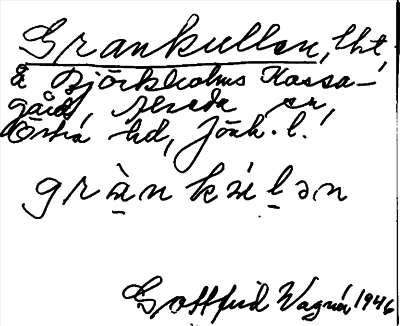 Grankullen, lht,
å Björkholms Kassa-
gård, Reseda sn,
Östra hd, Jönk. l.
gràn kúlən
Gottfrid Wagnér 1946